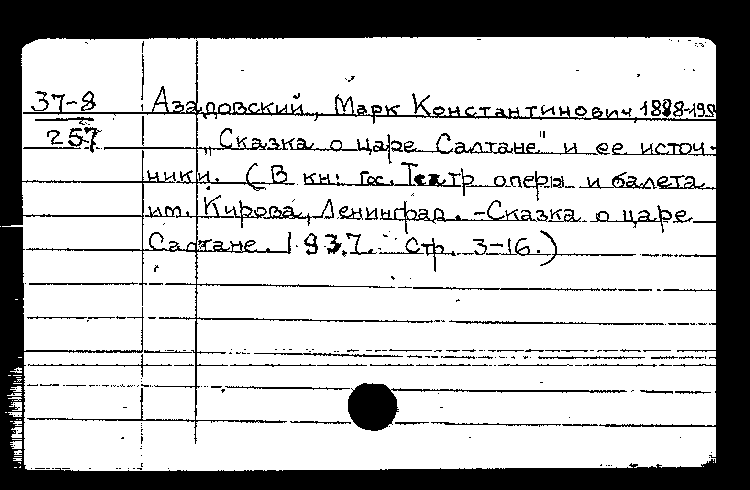 37-8 Азадовский, Марк Константинович, 1888-195
257 „Сказка о царе Салтане" и ее источ-
ники. (В кн: Гос. Театр оперы и балета
им. Кирова, Ленинград. -Сказка о царе
Салтане. 1937. Стр. 3-16.)